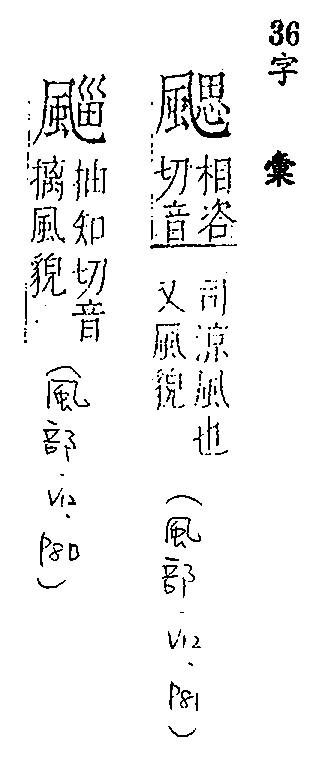 36字彙
颸
相咨
切音
司涼風也
又風貌
(風部.V12.P81)
抽知切音
摛風貌
(風部.V12.P80)